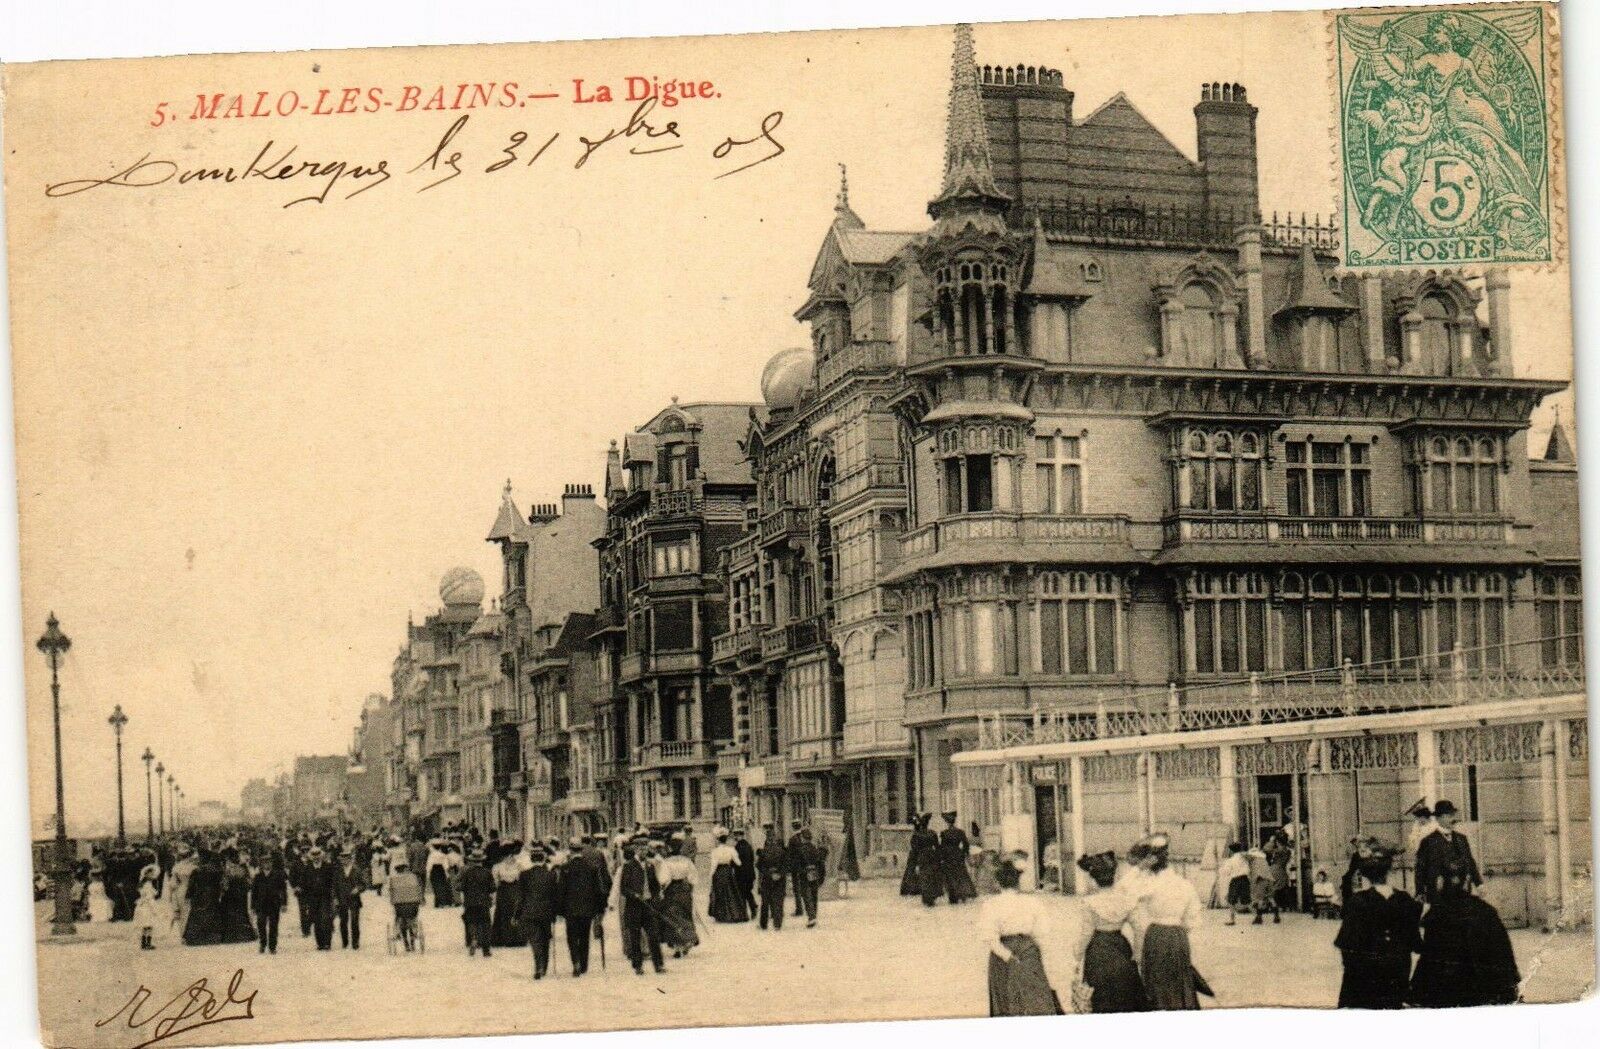 5. MALO-LES-BAINS.— La Digue.
Dunkerque le 31 8bre 05
5c
POSTES